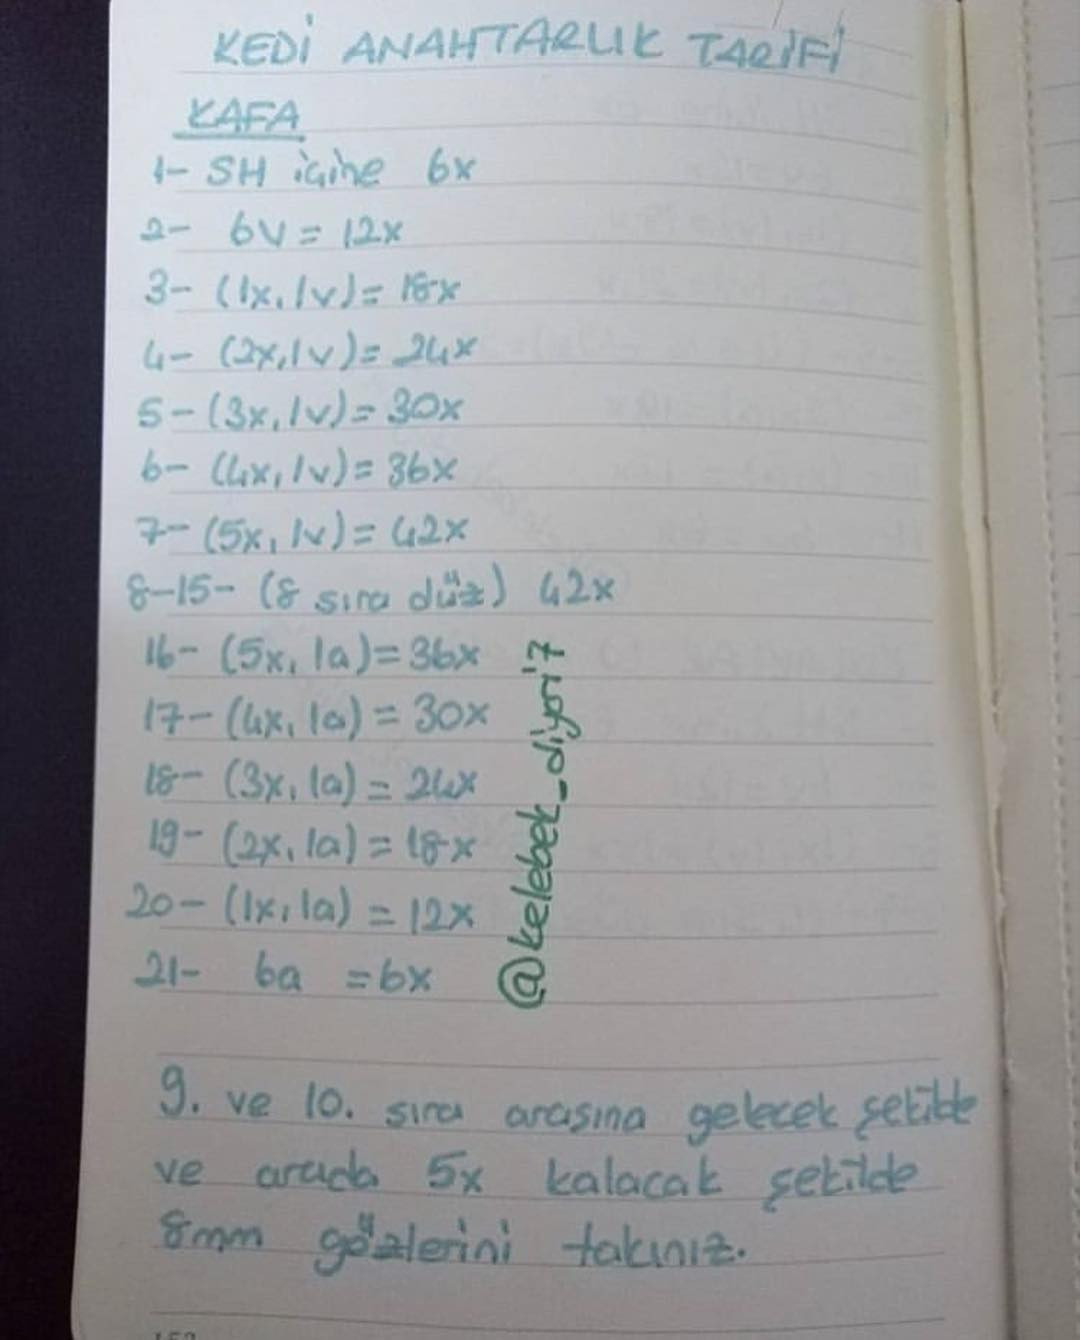 KEDİ ANAHTARLIK TARİFİ
KAFA
1- SH içine 6x
2- 6v = 12x
3- (1x, 1v) = 18x
4- (2x, 1v) = 24x
5- (3x, 1v) = 30x
6- (4x, 1v) = 36x
7- (5x, 1v) = 42x
8-15- (8 sıra düz) 42x
16- (5x, 1a) = 36x
17- (4x, 1a) = 30x
18- (3x, 1a) = 24x
19- (2x, 1a) = 18x
20- (1x, 1a) = 12x
21- 6a = 6x
@kelebek_diyori7
9. ve 10. sıra arasına gelecek şekilde
ve arada 5x kalacak şekilde
8mm gözlerini takınız.